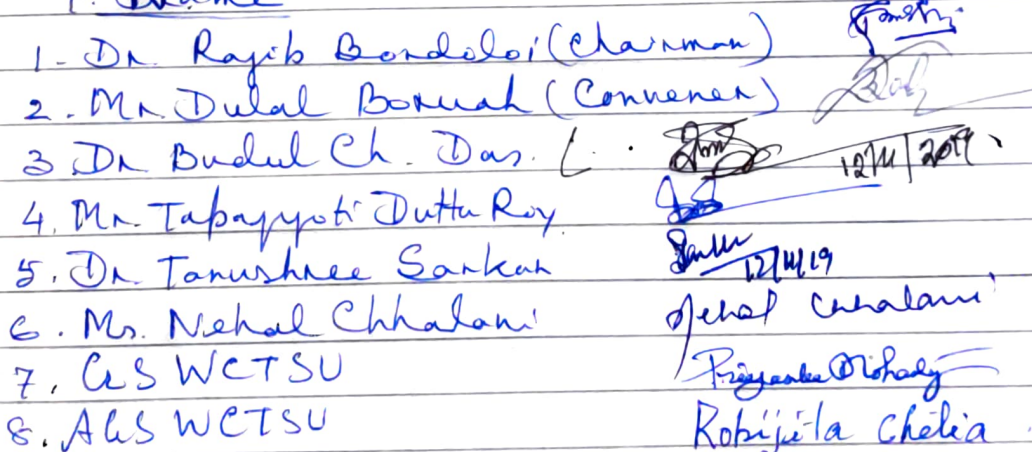 1. Dr. Rajib Bordoloi (Chairman)
2. Mr. Dulal Boruah (Convener)
3 Dr Budul Ch. Das. 12/11/2019
4. Mr. Tapajyoti Dutta Roy
5. Dr. Tanushree Sarkar 12/11/19
6. Ms. Nehal Chhalani Nehal Chhalani
7. GS WCTSU Priyanka
8. AGS WCTSU Robijita Chetia